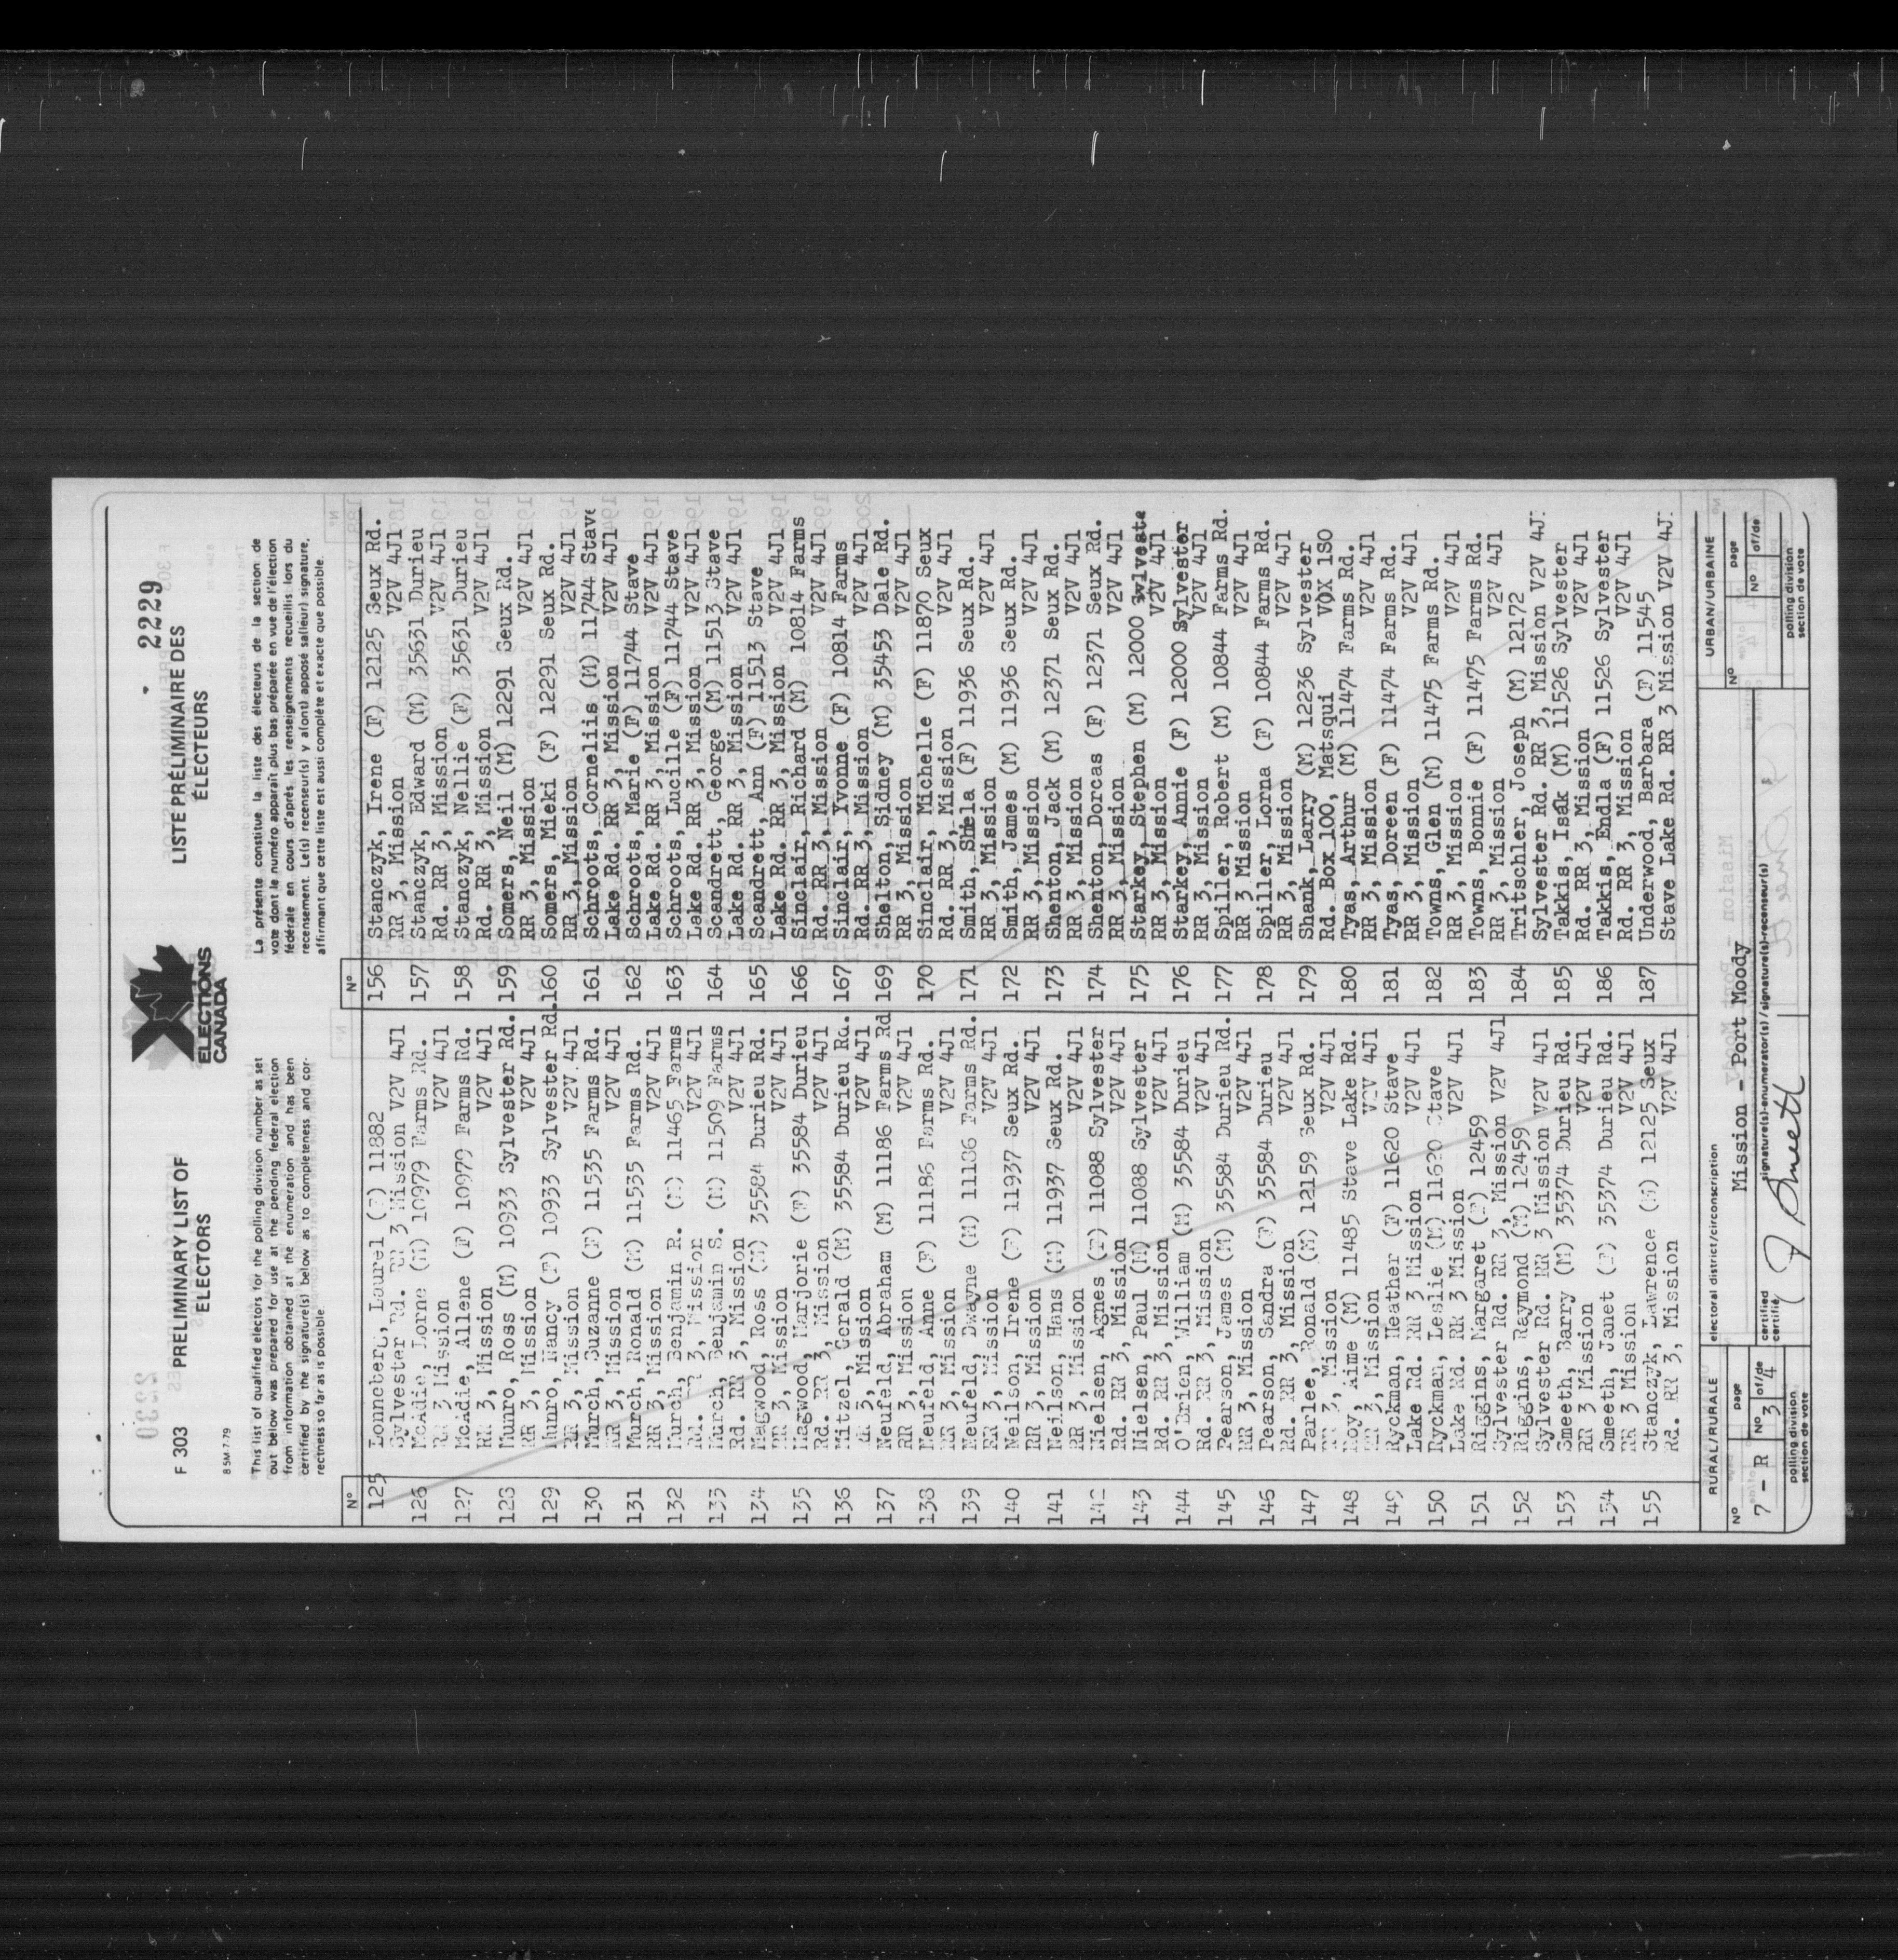 2229
F 303 PRELIMINARY LIST OF
ELECTORS
ELECTIONS
CANADA
LISTE PRÉLIMINAIRE DES
ÉLECTEURS
85M-7-79
This list of qualified electors for the polling division number as set
out below was prepared for use at the pending federal election
from information obtained at the enumeration and has been
certified by the signature(s) below as to completeness and cor-
rectness so far as is possible.
La présente constitue la liste des électeurs de la section de
vote dont le numéro apparaît plus bas préparée en vue de l'élection
fédérale en cours d'après les renseignements recueillis lors du
recensement. Le(s) recenseur(s) y a(ont) apposé sa(leur) signature,
affirmant que cette liste est aussi complète et exacte que possible.
Nº
125 Lonneberg, Laurel (F) 11882
Sylvester Rd. RR 3 Mission V2V 4J1
126 McAdie, Lorne (M) 10979 Farms Rd.
RR 3 Mission V2V 4J1
127 McAdie, Allene (F) 10979 Farms Rd.
RR 3, Mission V2V 4J1
128 Munro, Ross (M) 10933 Sylvester Rd.
RR 3, Mission V2V 4J1
129 Munro, Nancy (F) 10933 Sylvester Rd.
RR 3, Mission V2V 4J1
130 Murch, Suzanne (F) 11535 Farms Rd.
RR 3, Mission V2V 4J1
131 Murch, Ronald (M) 11535 Farms Rd.
RR 3, Mission V2V 4J1
132 Murch, Benjamin R. (M) 11465 Farms
Rd. RR 3, Mission V2V 4J1
133 Murch, Benjamin S. (M) 11509 Farms
Rd. RR 3, Mission V2V 4J1
134 Magwood, Ross (M) 35584 Durieu Rd.
RR 3, Mission V2V 4J1
135 Magwood, Marjorie (F) 35584 Durieu
Rd. RR 3, Mission V2V 4J1
136 Mitzel, Gerald (M) 35584 Durieu Rd.
RR 3, Mission V2V 4J1
137 Neufeld, Abraham (M) 11186 Farms Rd
RR 3, Mission V2V 4J1
138 Neufeld, Anne (F) 11186 Farms Rd.
RR 3, Mission V2V 4J1
139 Neufeld, Dwayne (M) 11186 Farms Rd.
RR 3, Mission V2V 4J1
140 Neilson, Irene (F) 11937 Seux Rd.
RR 3, Mission V2V 4J1
141 Neilson, Hans (M) 11937 Seux Rd.
RR 3, Mission V2V 4J1
142 Nielsen, Agnes (F) 11088 Sylvester
Rd. RR 3, Mission V2V 4J1
143 Nielsen, Paul (M) 11088 Sylvester
Rd. RR 3, Mission V2V 4J1
144 O'Brien, William (M) 35584 Durieu
Rd. RR 3, Mission V2V 4J1
145 Pearson, James (M) 35584 Durieu Rd.
RR 3, Mission V2V 4J1
146 Pearson, Sandra (F) 35584 Durieu
Rd. RR 3, Mission V2V 4J1
147 Parlee, Ronald (M) 12159 Seux Rd.
RR 3, Mission V2V 4J1
148 Roy, Aime (M) 11485 Stave Lake Rd.
RR 3, Mission V2V 4J1
149 Ryckman, Heather (F) 11620 Stave
Lake Rd. RR 3 Mission V2V 4J1
150 Ryckman, Leslie (M) 11620 Stave
Lake Rd. RR 3 Mission V2V 4J1
151 Riggins, Margaret (F) 12459
Sylvester Rd. RR 3, Mission V2V 4J1
152 Riggins, Raymond (M) 12459
Sylvester Rd. RR 3 Mission V2V 4J1
153 Smeeth, Barry (M) 35374 Durieu Rd.
RR 3 Mission V2V 4J1
154 Smeeth, Janet (F) 35374 Durieu Rd.
RR 3 Mission V2V 4J1
155 Stanczyk, Lawrence (M) 12125 Seux
Rd. RR 3, Mission V2V 4J1
Nº
156 Stanczyk, Irene (F) 12125 Seux Rd.
RR 3, Mission V2V 4J1
157 Stanczyk, Edward (M) 35631 Durieu
Rd. RR 3, Mission V2V 4J1
158 Stanczyk, Nellie (F) 35631 Durieu
Rd. RR 3, Mission V2V 4J1
159 Somers, Neil (M) 12291 Seux Rd.
RR 3, Mission V2V 4J1
160 Somers, Mieki (F) 12291 Seux Rd.
RR 3, Mission V2V 4J1
161 Schroots, Corneliis (M) 11744 Stave
Lake Rd. RR 3, Mission V2V 4J1
162 Schroots, Marie (F) 11744 Stave
Lake Rd. RR 3, Mission V2V 4J1
163 Schroots, Lucille (F) 11744 Stave
Lake Rd. RR 3, Mission V2V 4J1
164 Scandrett, George (M) 11513 Stave
Lake Rd. RR 3, Mission V2V 4J1
165 Scandrett, Ann (F) 11513 Stave
Lake Rd. RR 3, Mission V2V 4J1
166 Sinclair, Richard (M) 10814 Farms
Rd. RR 3, Mission V2V 4J1
167 Sinclair, Yvonne (F) 10814 Farms
Rd. RR 3, Mission V2V 4J1
169 Shelton, Sidney (M) 35453 Dale Rd.
RR 3, Mission V2V 4J1
170 Sinclair, Michelle (F) 11870 Seux
Rd. RR 3, Mission V2V 4J1
171 Smith, Shela (F) 11936 Seux Rd.
RR 3, Mission V2V 4J1
172 Smith, James (M) 11936 Seux Rd.
RR 3, Mission V2V 4J1
173 Shenton, Jack (M) 12371 Seux Rd.
RR 3, Mission V2V 4J1
174 Shenton, Dorcas (F) 12371 Seux Rd.
RR 3, Mission V2V 4J1
175 Starkey, Stephen (M) 12000 Sylveste
RR 3, Mission V2V 4J1
176 Starkey, Annie (F) 12000 Sylvester
RR 3, Mission V2V 4J1
177 Spiller, Robert (M) 10844 Farms Rd.
RR 3 Mission V2V 4J1
178 Spiller, Lorna (F) 10844 Farms Rd.
RR 3, Mission V2V 4J1
179 Shank, Larry (M) 12236 Sylvester
Rd. Box 100, Matsqui VOX 1SO
180 Tyas, Arthur (M) 11474 Farms Rd.
RR 3, Mission V2V 4J1
181 Tyas, Doreen (F) 11474 Farms Rd.
RR 3, Mission V2V 4J1
182 Towns, Glen (M) 11475 Farms Rd.
RR 3, Mission V2V 4J1
183 Towns, Bonnie (F) 11475 Farms Rd.
RR 3, Mission V2V 4J1
184 Tritschler, Joseph (M) 12172
Sylvester Rd. RR 3, Mission V2V 4J
185 Takkis, Isak (M) 11526 Sylvester
Rd. RR 3, Mission V2V 4J1
186 Takkis, Endla (F) 11526 Sylvester
Rd. RR 3, Mission V2V 4J1
187 Underwood, Barbara (F) 11545
Stave Lake Rd. RR 3 Mission V2V 4J
RURAL/RURALE
electoral district/circonscription
URBAN/URBAINE
Nº page
7 - R Nº 3 of/de 4
polling division
section de vote
Mission - Port Moody
certified
certifié
J Smeeth
signature(s)-enumerator(s)/signature(s)-recenseur(s)
Nº page
Nº of/de
polling division
section de vote